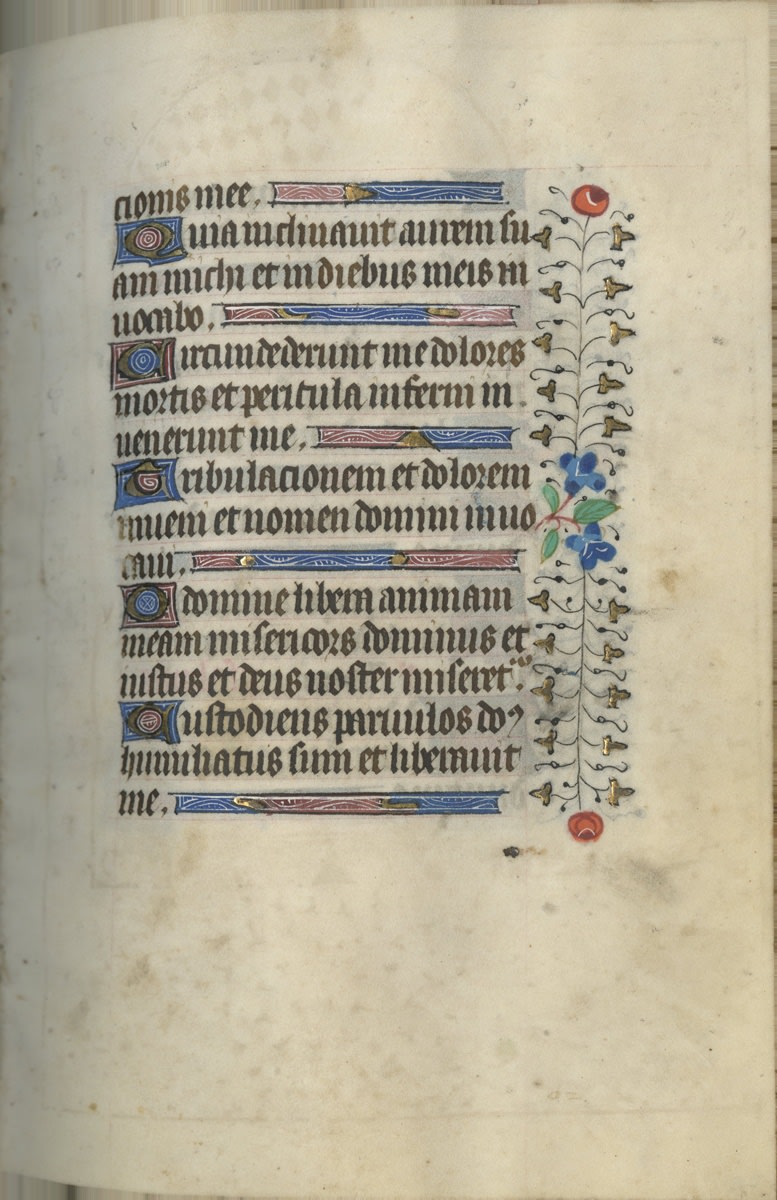 cionis mee.
Quia inclinauit aurem su
am michi et in diebus meis in
uocabo.
Circundederunt me dolores
mortis et pericula inferni in
uenerunt me.
Tribulacionem et dolorem
inueni et nomen domini inuo
caui.
O domine libera animam
meam misericors dominus et
iustus et deus noster miseret᷑.
Custodiens paruulos do⁹
humiliatus sum et liberauit
me.